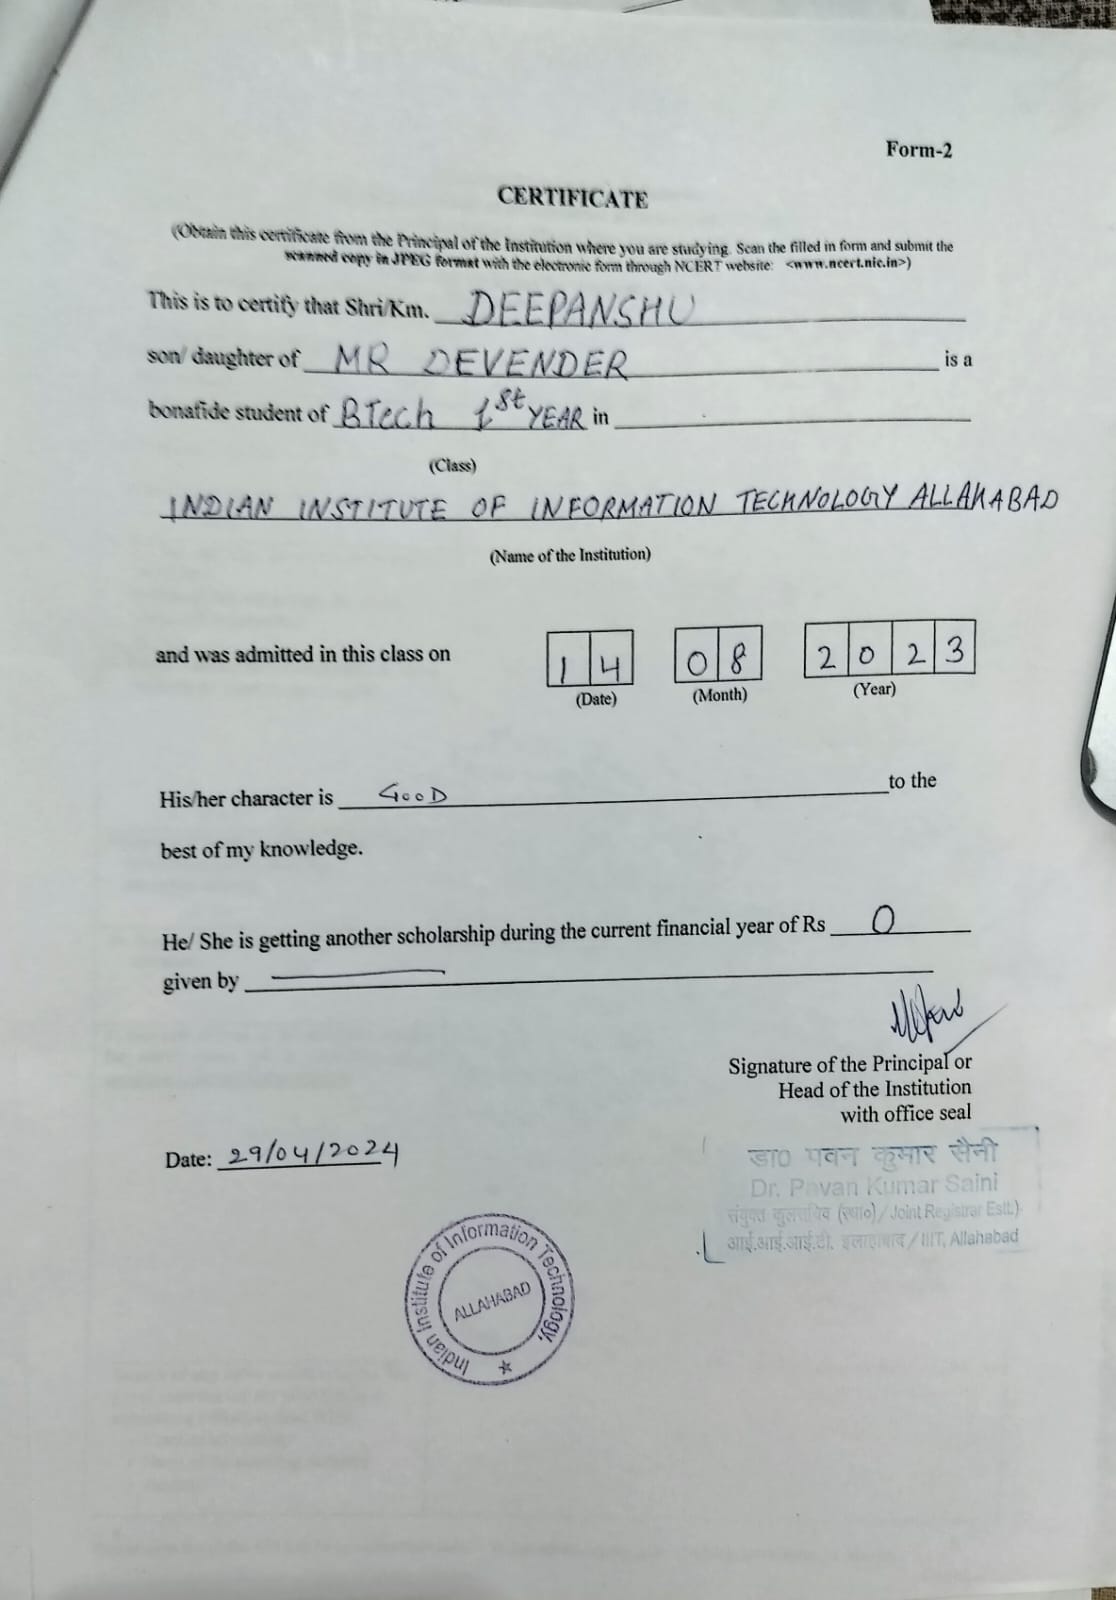 Form-2
CERTIFICATE
(Obtain this certificate from the Principal of the Institution where you are studying. Scan the filled in form and submit the
scanned copy in JPEG format with the electronic form through NCERT website: <www.ncert.nic.in>)
This is to certify that Shri/Km. DEEPANSHU
son/ daughter of MR DEVENDER is a
bonafide student of BTech 1st YEAR in
(Class)
INDIAN INSTITUTE OF INFORMATION TECHNOLOGY ALLAHABAD
(Name of the Institution)
and was admitted in this class on 14 08 2023
(Date) (Month) (Year)
His/her character is GOOD to the
best of my knowledge.
He/ She is getting another scholarship during the current financial year of Rs 0
given by
Signature of the Principal or
Head of the Institution
with office seal
Date: 29/04/2024
डा० पवन कुमार सैनी
Dr. Pavan Kumar Saini
संयुक्त कुलसचिव (स्था०) / Joint Registrar Estt.)
आई.आई.आई.टी. इलाहाबाद / IIIT, Allahabad
Indian Institute of Information Technology,
ALLAHABAD